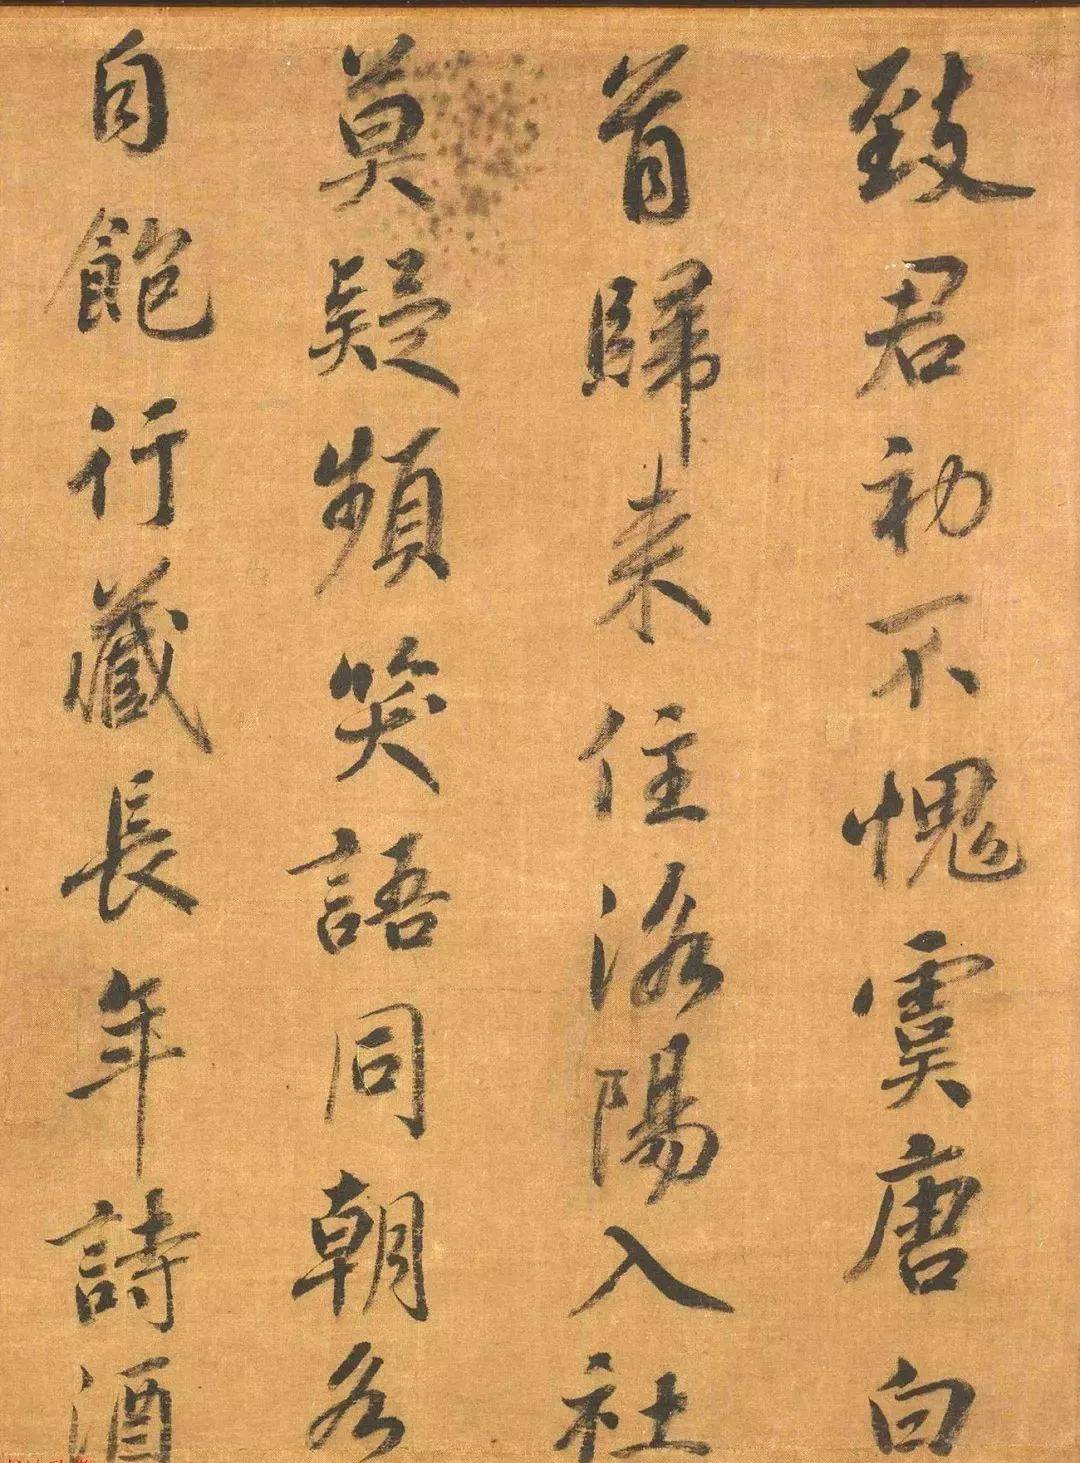 致君初不愧虞唐白
首歸来住洛陽入社
莫疑頻笑語同朝各
自飽行藏長年詩酒